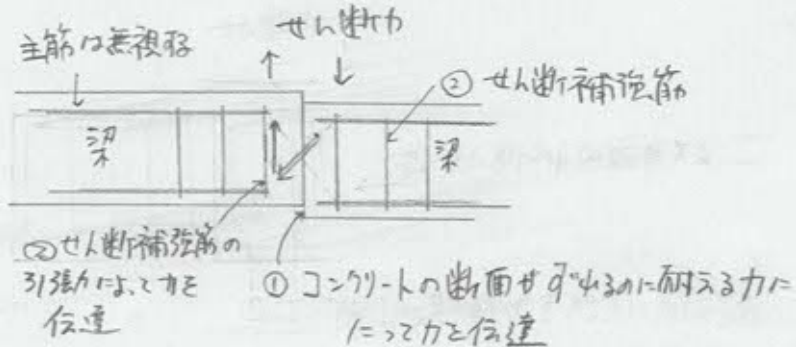 せん断力
主筋は無視する
② せん断補強筋
梁
梁
② せん断補強筋の
引張力によって力を
伝達
① コンクリートの断面がずれるのに耐える力に
よって力を伝達